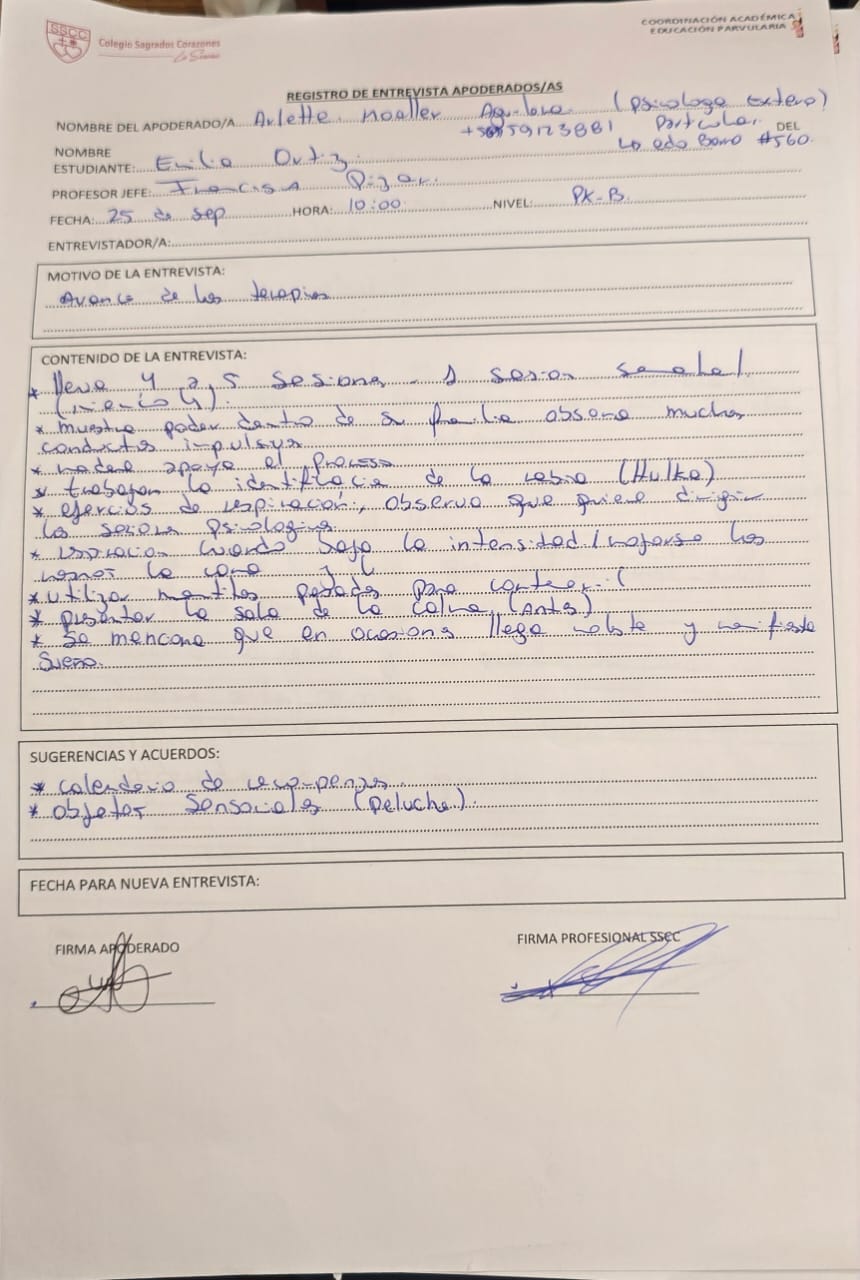 SSCC
Colegio Sagrados Corazones
La Serena
COORDINACIÓN ACADÉMICA
EDUCACIÓN PARVULARIA
REGISTRO DE ENTREVISTA APODERADOS/AS
NOMBRE DEL APODERADO/A Arlette (psicologa externo)
Particular DEL
NOMBRE
ESTUDIANTE: Emilia Ortiz #560.
PROFESOR JEFE:
FECHA: 25 de sep HORA: 10:00 NIVEL: PK-B.
ENTREVISTADOR/A:
MOTIVO DE LA ENTREVISTA:
Avance de las terapias
CONTENIDO DE LA ENTREVISTA:
* lleva 4 a 5 sesiones - 1 sesion semanal.
* muestra poder dentro de su familia observa muchas
conductas impulsivas
* madre apoya el proceso
* trabajan la identificacia de la rabia (Hulka)
* ejercios de respiración, observa que quiere dirigir
las sesiones psicologicas
* respiracion cuando baja la intensidad / mojarse las
manos la cara y
* utilizar mantitas pesadas para contener.
* presentar la sala de la calma (antes)
* Se menciona que en ocasiones llega molesta y manifiesta
Sueño.
SUGERENCIAS Y ACUERDOS:
* calendario de recompensas
* objetos sensoriales (peluche).
FECHA PARA NUEVA ENTREVISTA:
FIRMA APODERADO FIRMA PROFESIONAL SSCC